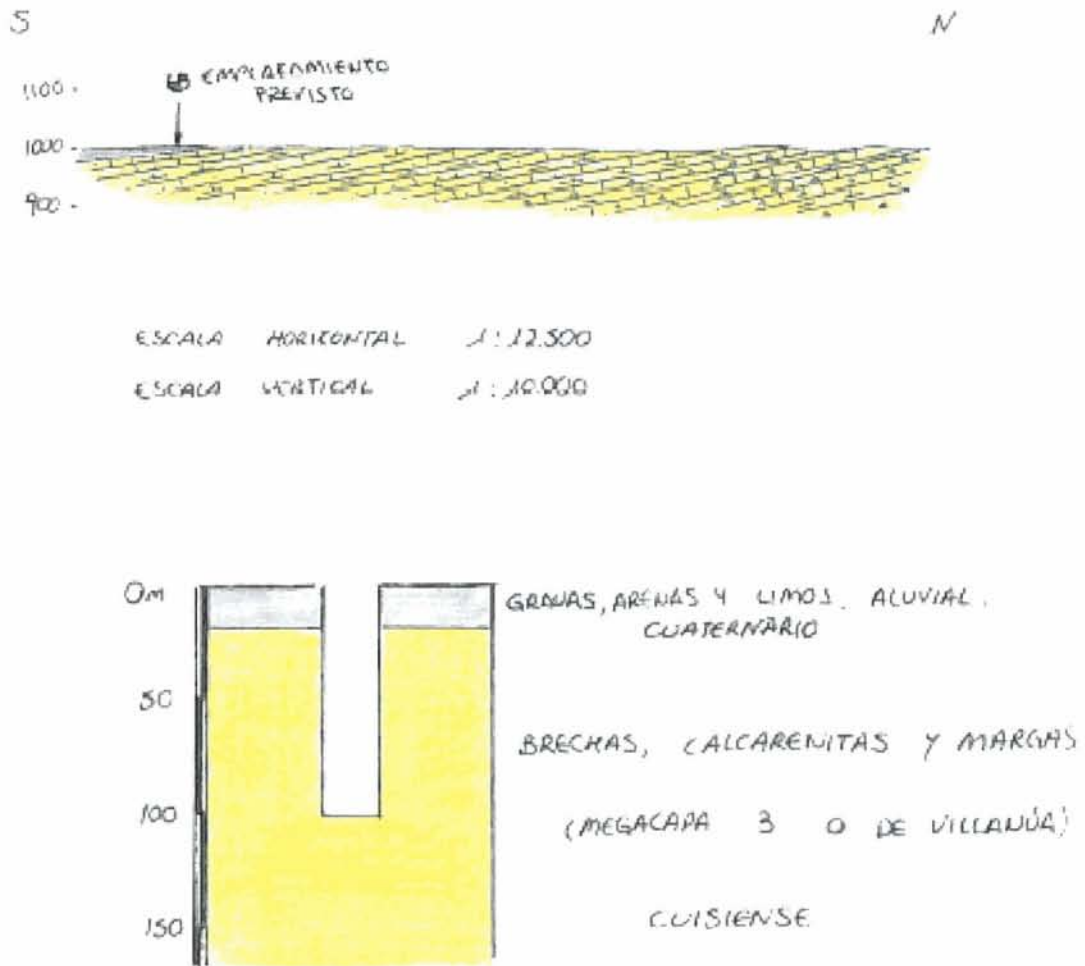 S N
EMPLAZAMIENTO
PREVISTO
1100
1000
900
ESCALA HORIZONTAL 1:12.500
ESCALA VERTICAL 1:10.000
0m
GRAVAS, ARENAS Y LIMOS. ALUVIAL.
CUATERNARIO
50
BRECHAS, CALCARENITAS Y MARGAS
100
(MEGACAPA 3 O DE VILLANÚA)
CUISIENSE
150